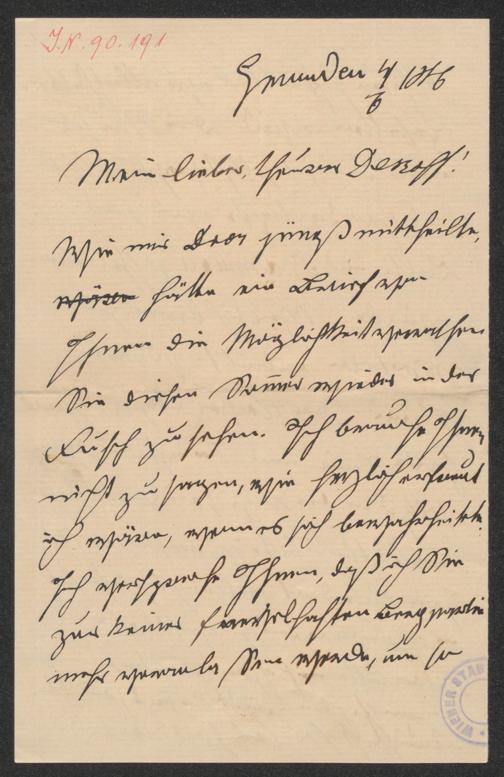 J.N. 90.191
Gmunden 4/6 1886
Mein lieber, theurer Dessoff!
Wie mir Door jüngst mittheilte,
hätte ein Bericht von
Ihnen die Möglichkeit verrathen
Sie diesen Sommer wieder in der
Fusch zu sehen. Ich brauche Ihnen
nicht zu sagen, wie herzlich erfreut
ich wäre, wenn es sich bewahrheitete.
Ich verspreche Ihnen, daß ich Sie
zur keiner frevelhaften Bergpartie
mehr veranlassen werde, um so
WIENER STA